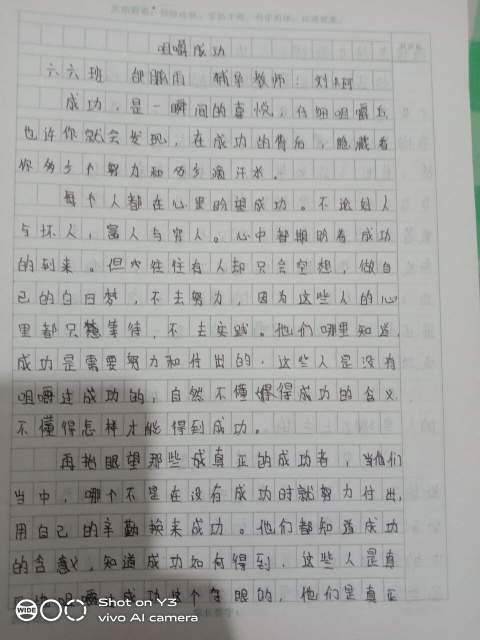 咀嚼成功
六六班 郃鵬雨 辅导教师：刘
成功，是一瞬间的喜悦，仔细咀嚼后
也许你就会发现，在成功的背后，隐藏着
你多少个努力和多少滴汗水。
每个人都在心里盼望成功。不论好人
与坏人，富人与穷人。心中都期盼着成功
的到来。但往往有人却只会空想，做自
己的白日梦，不去努力，因为这些人的心
里都只想等待，不去实践。他们哪里知道，
成功是需要努力和付出的。这些人是没有
咀嚼过成功的，自然不懂得成功的含义
不懂得怎样才能得到成功。
再抬眼望那些真正的成功者，当他们
当中，哪个不是在没有成功时就努力付出，
用自己的辛勤换来成功。他们都知道成功
的含义，知道成功如何得到，这些人是真
咀嚼成功这个字眼的，他们是真正
WIDE Shot on Y3
vivo AI camera